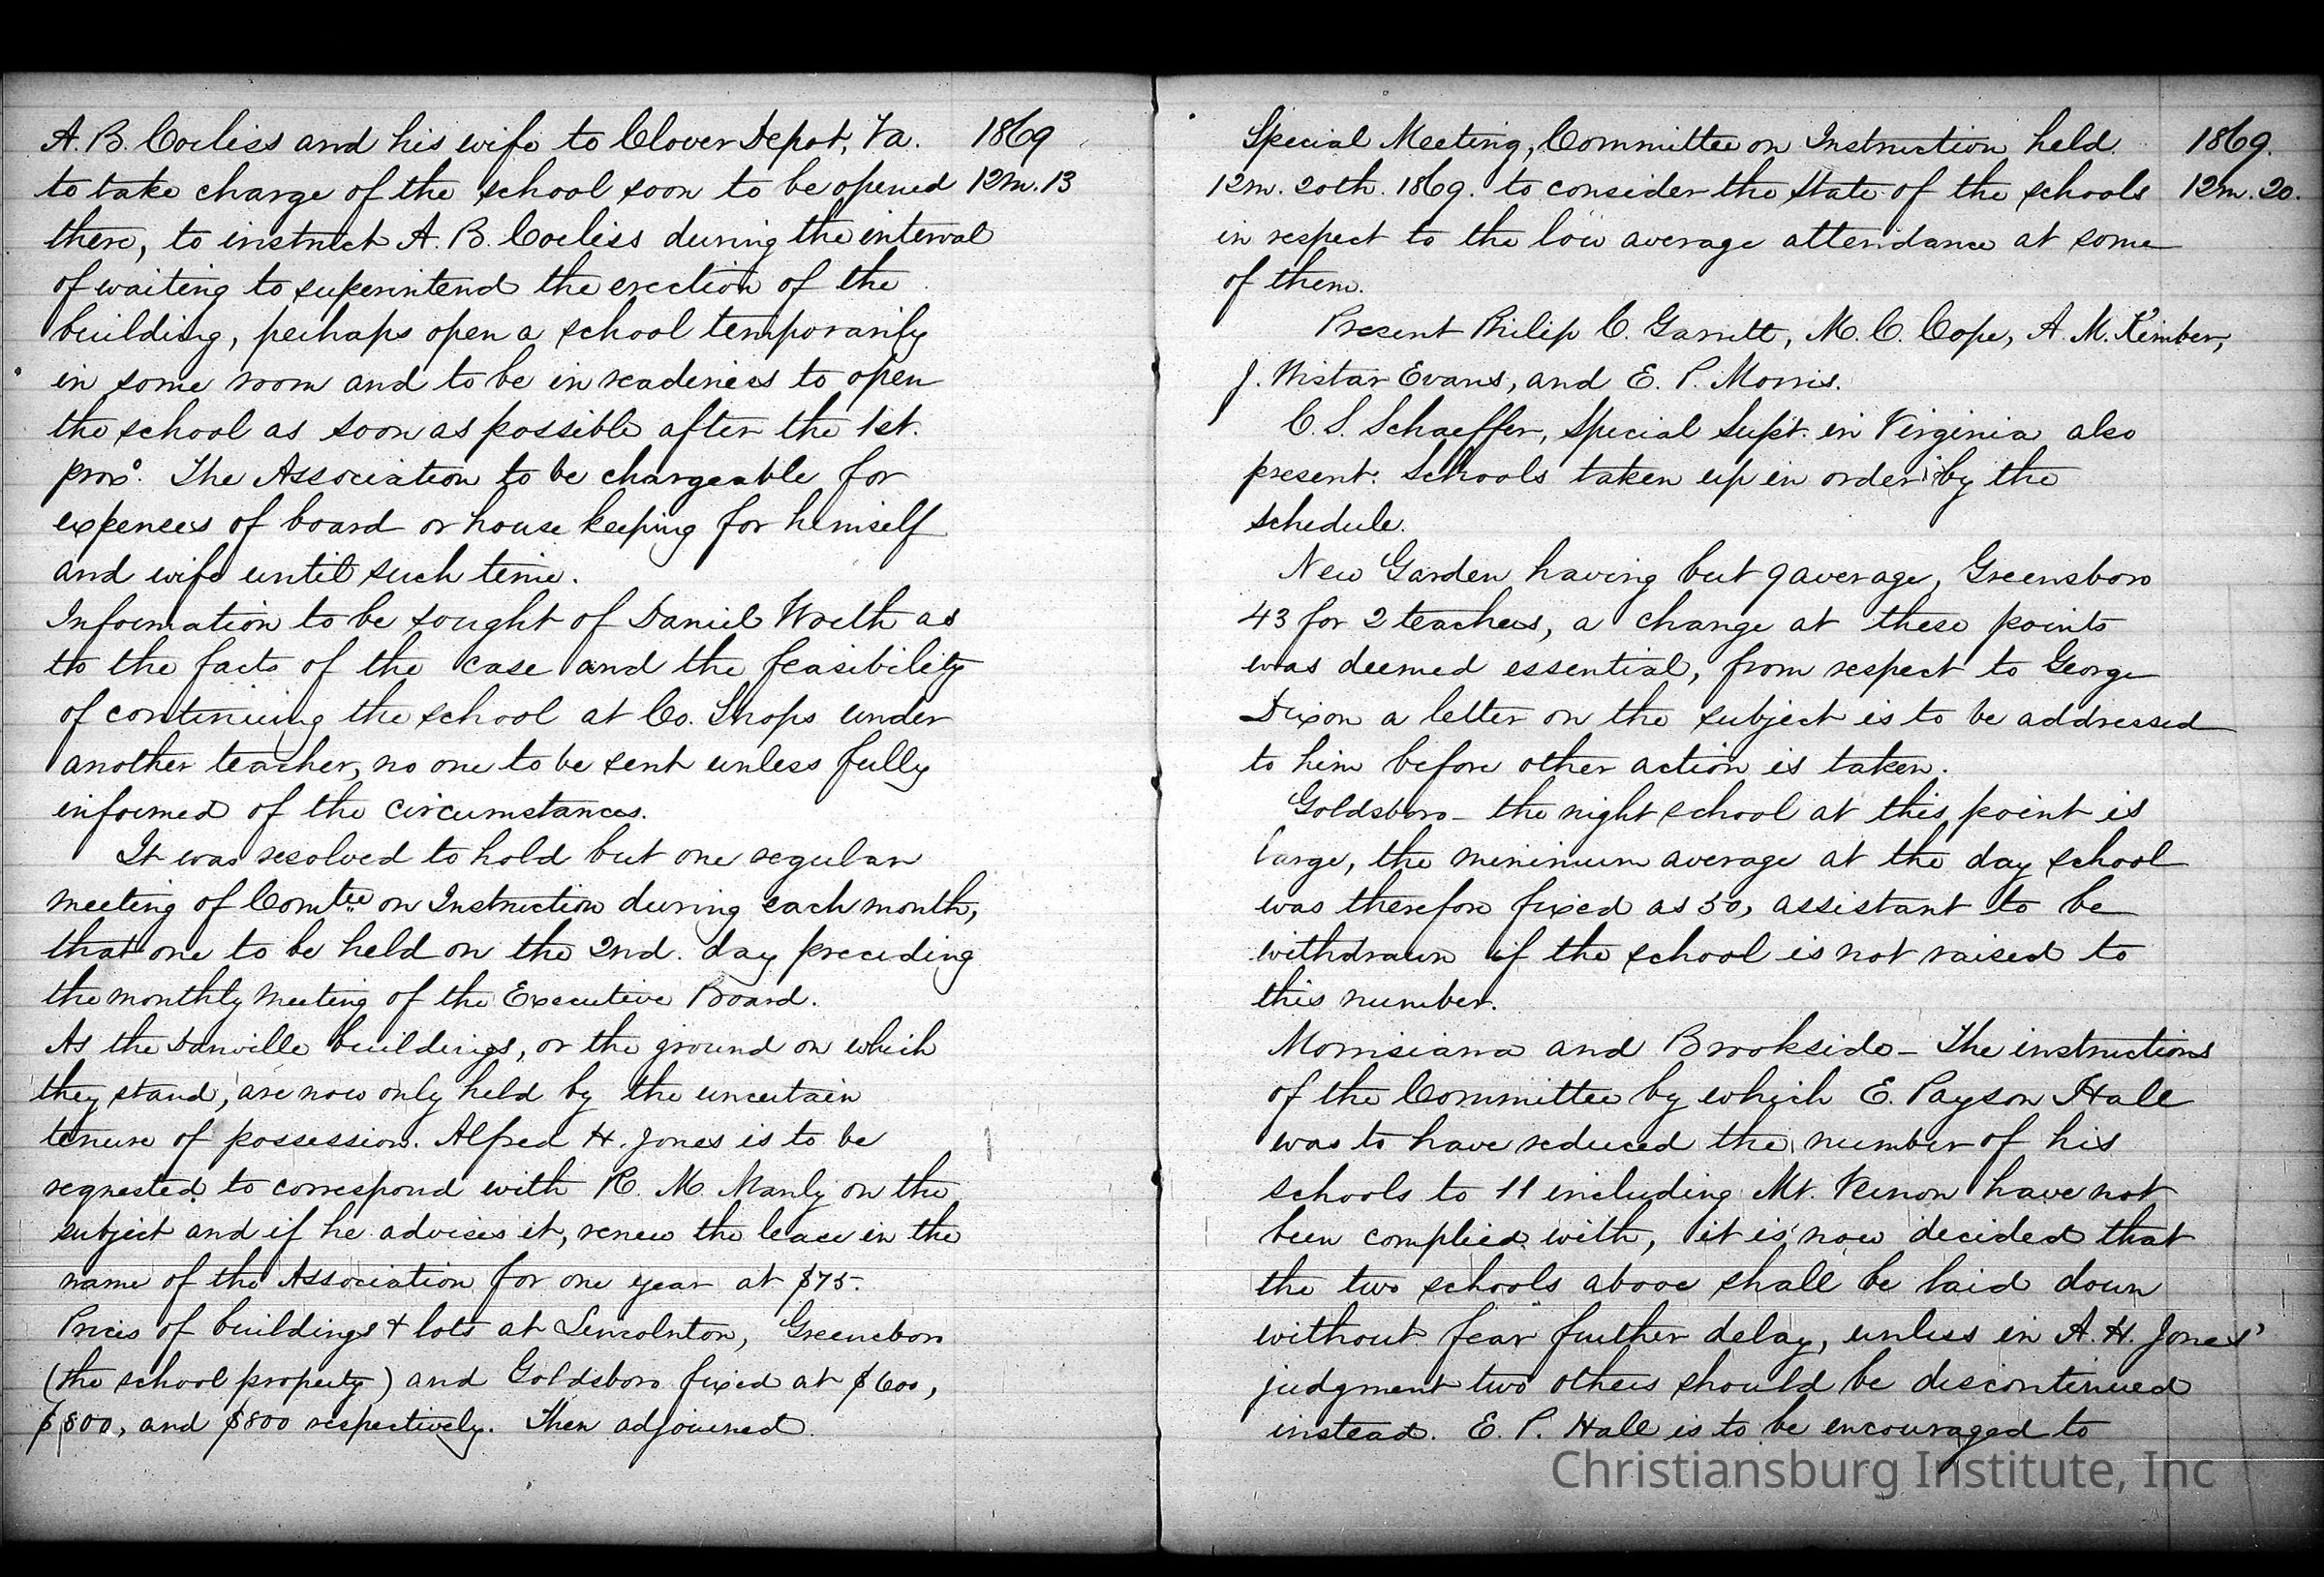 A. B. Corliss and his wife to Clover Depot, Va.
1869
to take charge of the school soon to be opened
12m. 13
there, to instruct A. B. Corliss during the interval
of waiting to superintend the erection of the
building, perhaps open a school temporarily
in some room and to be in readiness to open
the school as soon as possible after the 1st.
proxo. The Association to be chargeable for
expenses of board or house keeping for himself
and wife until such time.
Information to be sought of Daniel Worth as
to the facts of the case and the feasibility
of continuing the school at Co. Shops under
another teacher, no one to be sent unless fully
informed of the circumstances.
It was resolved to hold but one regular
meeting of Comtee on Instruction during each month,
that one to be held on the 2nd. day preceding
the monthly meeting of the Executive Board.
As the Danville buildings, or the ground on which
they stand, are now only held by the uncertain
tenure of possession. Alfred H. Jones is to be
requested to correspond with R. M. Manly on the
subject and if he advises it, renew the lease in the
name of the Association for one year at $75.
Prices of buildings & lots at Lincolnton, Greensboro
(the school property) and Goldsboro fixed at $600,
$800, and $800 respectively. Then adjourned.
Special Meeting, Committee on Instruction held
1869.
12m. 20th. 1869. to consider the state of the schools
12m. 20.
in respect to the low average attendance at some
of them.
Present Philip C. Garrett, M. C. Cope, A. M. Kimber,
J. Wistar Evans, and E. P. Morris.
C. S. Schaeffer, Special Supt. in Virginia also
present. Schools taken up in order by the
schedule.
New Garden having but 9 average, Greensboro
43 for 2 teachers, a change at these points
was deemed essential, from respect to George
Dixon a letter on the subject is to be addressed
to him before other action is taken.
Goldsboro - the night school at this point is
large, the minimum average at the day school
was therefore fixed as 50, assistant to be
withdrawn if the school is not raised to
this number.
Morrisiana and Brookside - The instructions
of the Committee by which E. Payson Hall
was to have reduced the number of his
schools to 11 including Mt. Vernon have not
been complied with, it is now decided that
the two schools above shall be laid down
without fear further delay, unless in A. H. Jones'
judgment two others should be discontinued
instead. E. P. Hall is to be encouraged to
Christiansburg Institute, Inc